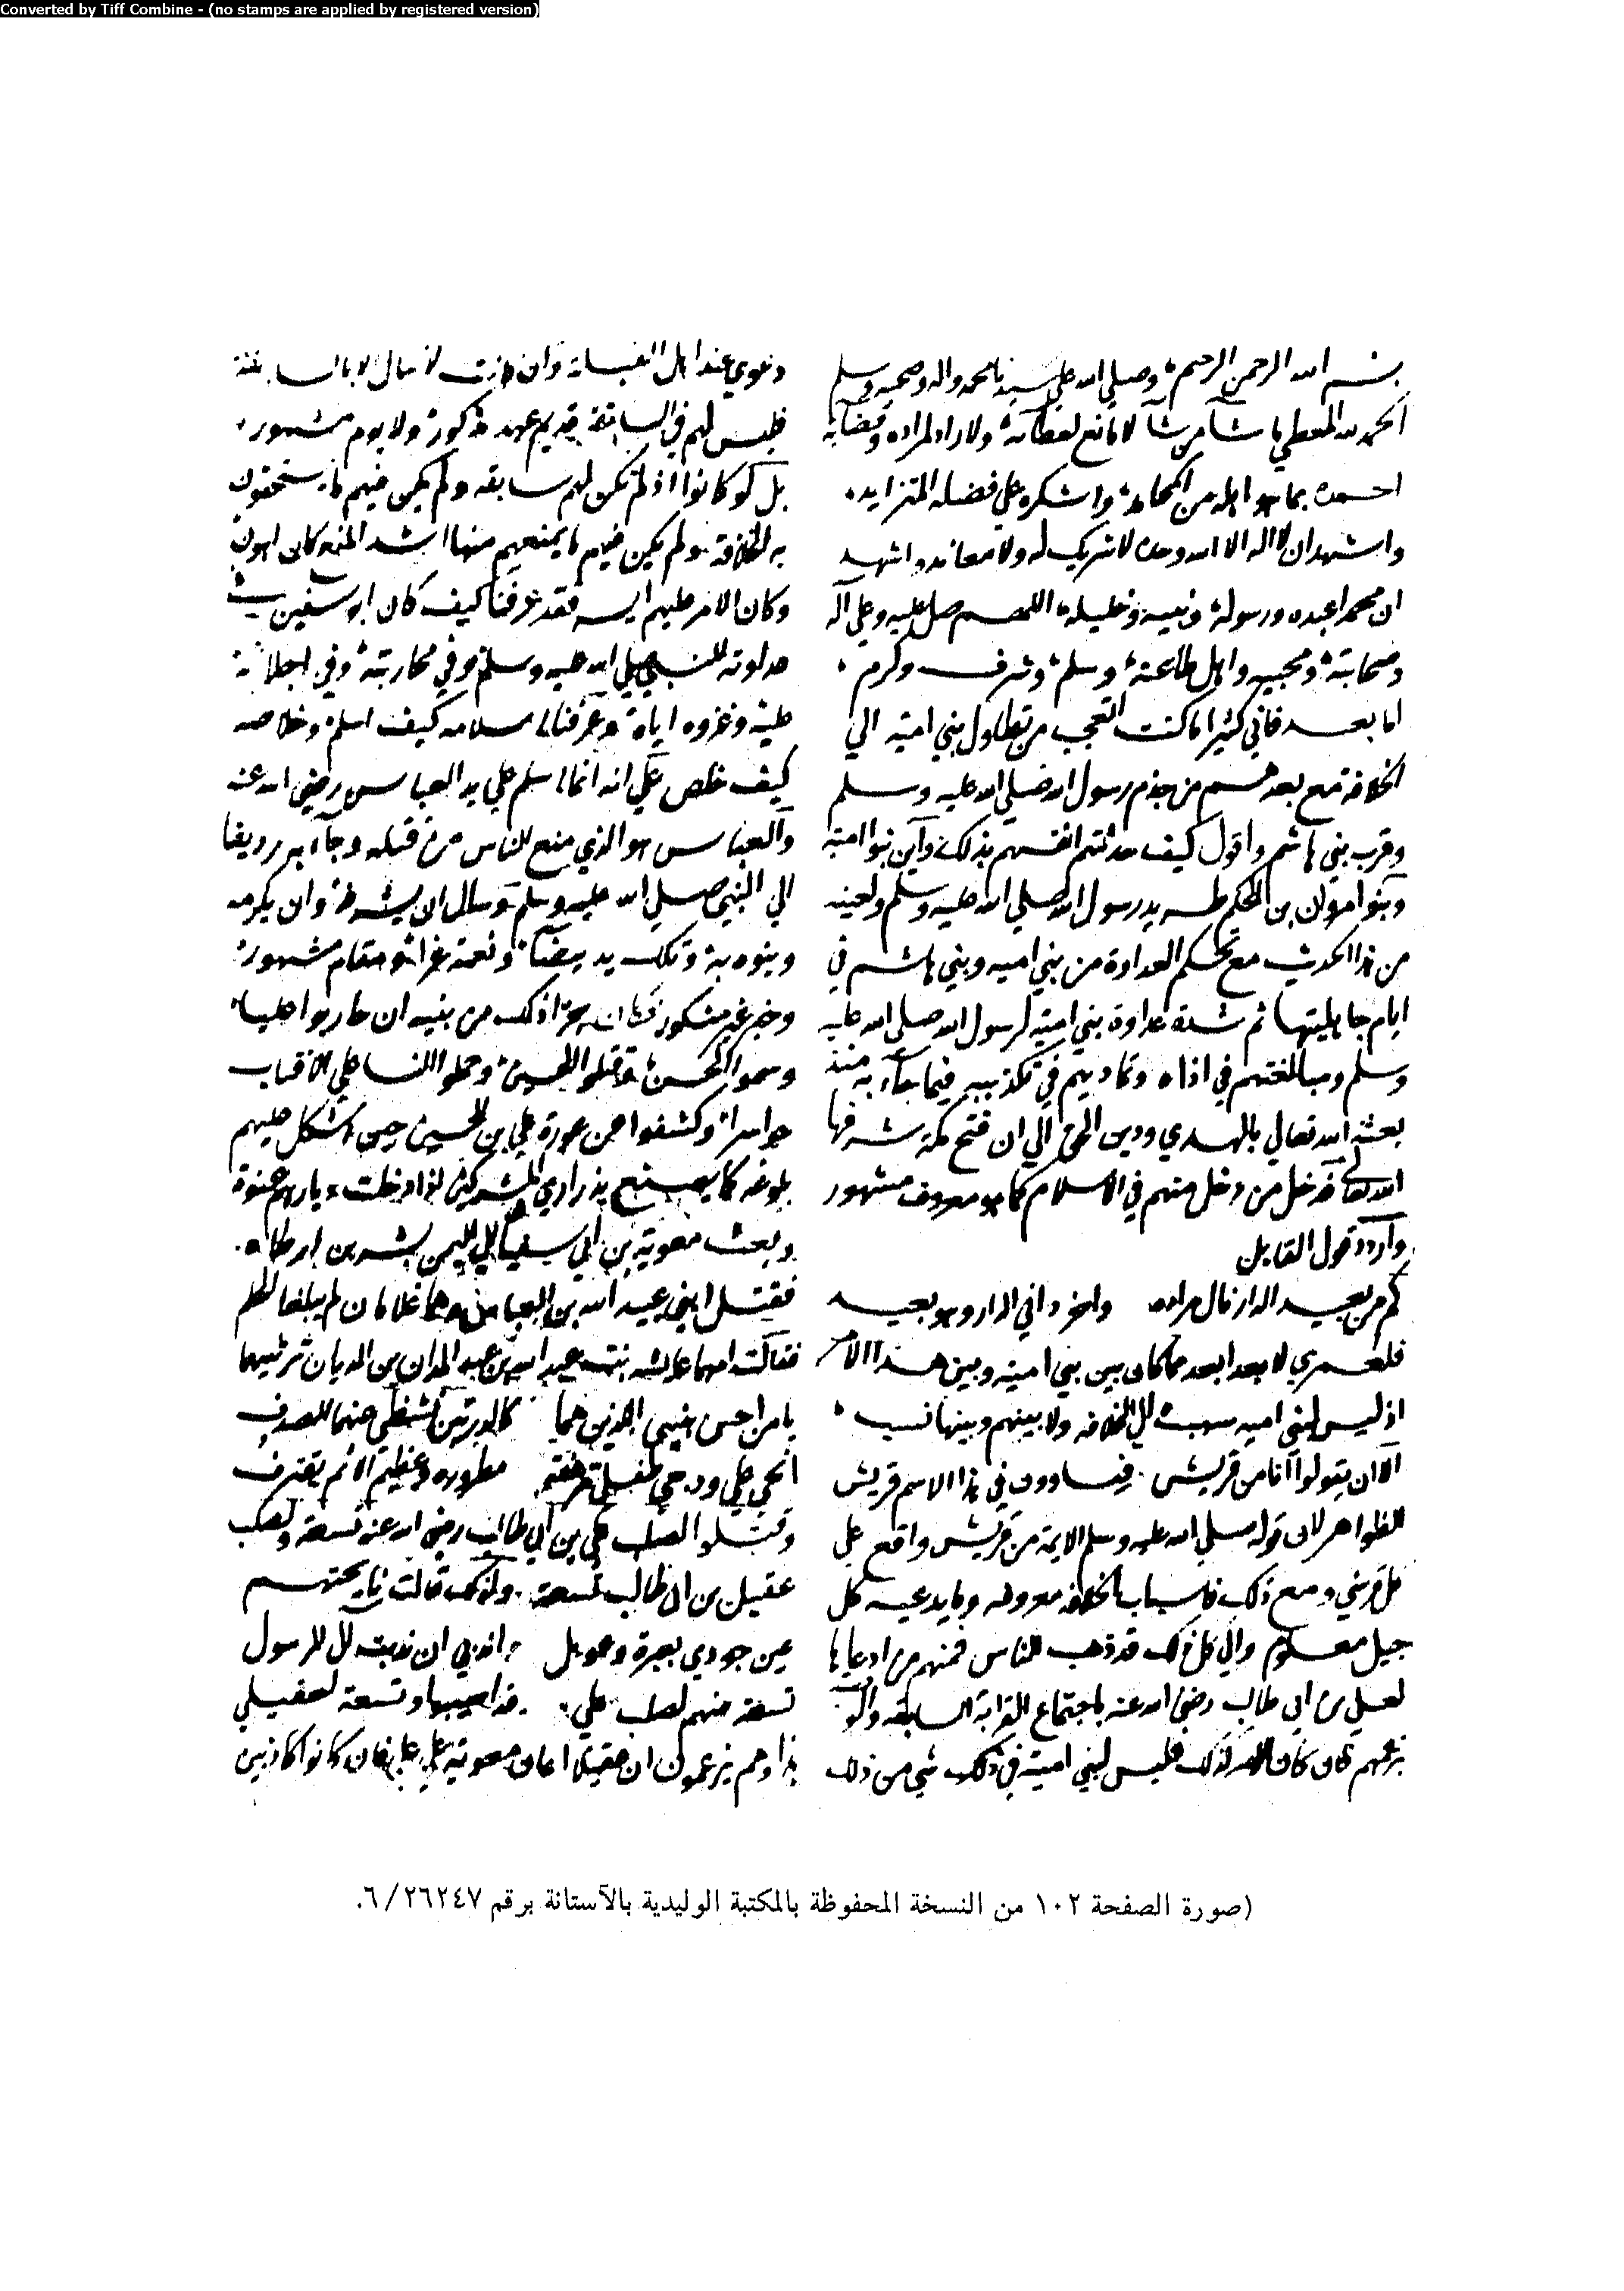 Converted by Tiff Combine - (no stamps are applied by registered version)
بسم الله الرحمن الرحيم وصلى الله على سيدنا محمد واله وصحبه وسلم
الحمد لله المعطي ما شآ من شآ لا مانع لعطآئه ولا راد لمراده وقضآيه
احمده بما هو اهله من المحامد واشكره علي فضله المتزايد
واشهد ان لا اله الا الله وحده لا شريك له ولا معاند واشهد
ان محمدا عبده ورسوله ونبيه وخليله اللهم صل عليه وعلي آله
وصحابته ومحبيه واهل طاعته وسلم وشرف وكرم
اما بعد فاني كثيرا ما كنت اتعجب من تطاول بني امية الي
الخلافة مع بعدهم من جذم رسول الله صلي الله عليه وسلم
وقرب بني هاشم واقول كيف حدثتهم انفسهم بذلك واين بنوا امية
وبنوا مروان بن الحكم طريد رسول الله صلي الله عليه وسلم ولعينه
من هذا الحديث مع تحكم العداوة من بني اميه وبني هاشم في
ايام جاهليتها ثم شدة عداوة بني امية لرسول الله صلى الله عليه
وسلم ومبالغتهم في اذاه وتماديهم في تكذيبه فيما جآء به منذ
بعثه الله تعالي بالهدي ودين الحق الي ان فتح مكة شرفها
الله تعالى فدخل من دخل منهم في الاسلام كما هو معروف مشهور
واردد قول القايل
كم من بعيد الدار نال مراده واخر داني الدار وهو بعيد
فلعمري لا بعد ابعد مما كان بين بني امية وبين هذا الامر
اذ ليس لبني اميه سبب الي الخلافه ولا بينهم وبينها نسب
الا ان يقولوا انا من قريش فيساوون في هذا الاسم قريش
الظواهر لان قوله صلي الله عليه وسلم الايمة من قريش واقع علي
كل قرشي ومع ذلك فاسباب الخلافه معروفه وما يدعيه كل
جيل معلوم والي كل ذلك قد ذهب الناس فمنهم من ادعاها
لعلي بن ابي طالب رضي الله عنه باجتماع القرابة السابقه والوصية
بزعمهم فان كان الامر كذلك فليس لبني امية في ذلك شي من ذلك
دعوي عند اهل القبلة وان كانت لا تنال الا بالسابقة
فليس لهم في السابقة قديم عهد مذكور ولا يوم مشهور
بل لو كانوا اذ لم تكن لهم سابقه ولم يكن فيهم ما يستحقون
به الخلافة ولم يكن فيهم ما يمنعهم منها اشد المنع كان اهون
وكان الامر عليهم ايسر فقد عرفنا كيف كان ابو سفين في
عداوته للنبي صلي الله عليه وسلم وفي محاربته وفي اجلابه
عليه وغزوه اياه وعرفنا اسلامه كيف اسلم وخلاصه
كيف خلص علي انه انما اسلم علي يد العباس رضي الله عنه
والعباس هو الذي منع الناس من قتله وجآء به رديفا
الي النبي صلي الله عليه وسلم وسال ان يشرفه وان يكرمه
وينوه به وتلك يد بيضآء ونعمة غرآء ومقام مشهور
وخبر غير منكور فكان جزا ذلك من بنيه ان حاربوا عليا
وسموا الحسن وقتلوا الحسين وحملوا النسا علي الاقتاب
حواسرا وكشفوا عن عورة علي بن الحسين حين اشكل عليهم
بلوغه كما يصنع بذراري المشركين اذا دخلت ديارهم عنوة
وبعث معوية بن ابي سفيان الي اليمن بسر بن ارطاه
فقتل ابني عبيد الله بن العباس وهما غلامان لم يبلغا الحلم
فقالت امهما عايشه بنت عبد الله بن عبد المدان بن الديان ترثيهما
يا من احس بنيي الذين هما كالدرتين تشظي عنهما الصدف
انحي علي ودجي طفلي مرهفة مطرورة وعظيم الاثم يقترف
وقتلوا لصلب علي بن ابي طالب رضي الله عنه تسعة ولصلب
عقيل بن ابي طالب تسعة ولذلك قالت نايحتهم
عين جودي بعبرة وعويل واندبي ان ندبت آل الرسول
تسعة منهم لصلب علي قد اصيبوا وتسعة لعقيل
هذا وهم يزعمون ان عقيلا اعان معوية علي علي فان كانوا كاذبين
(صورة الصفحة ١٠٢ من النسخة المحفوظة بالمكتبة الوليدية بالآستانة برقم ٢٦٢٤٧/٦.